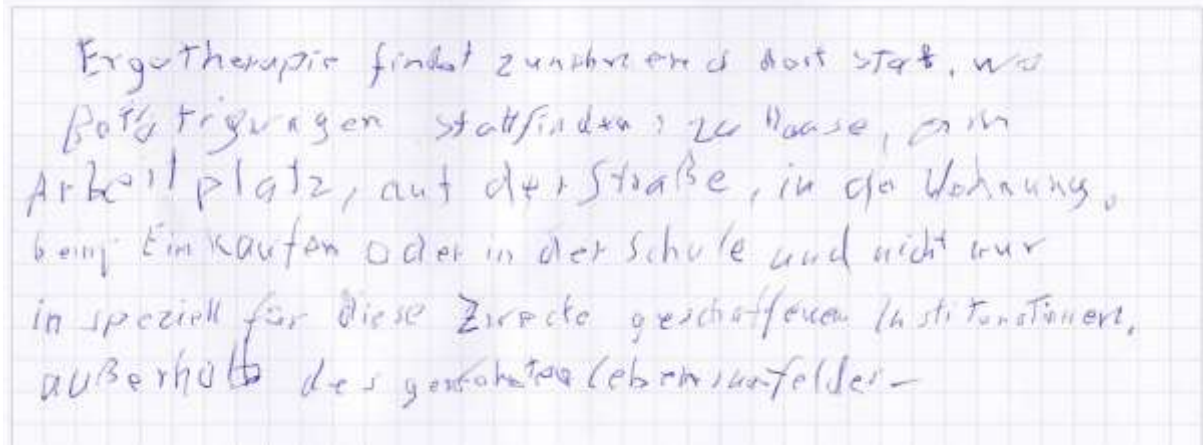 Ergotherapie findet zunehmend dort stat, wo
Betätigungen stattfinden: zu Hause, am
Arbeitplatz, auf der Straße, in der Wohnung,
beim Einkaufen oder in der Schule und nicht nur
in speziell für diese Zwecke geschaffenen
außerhalb des gewohnten Lebensumfeldes